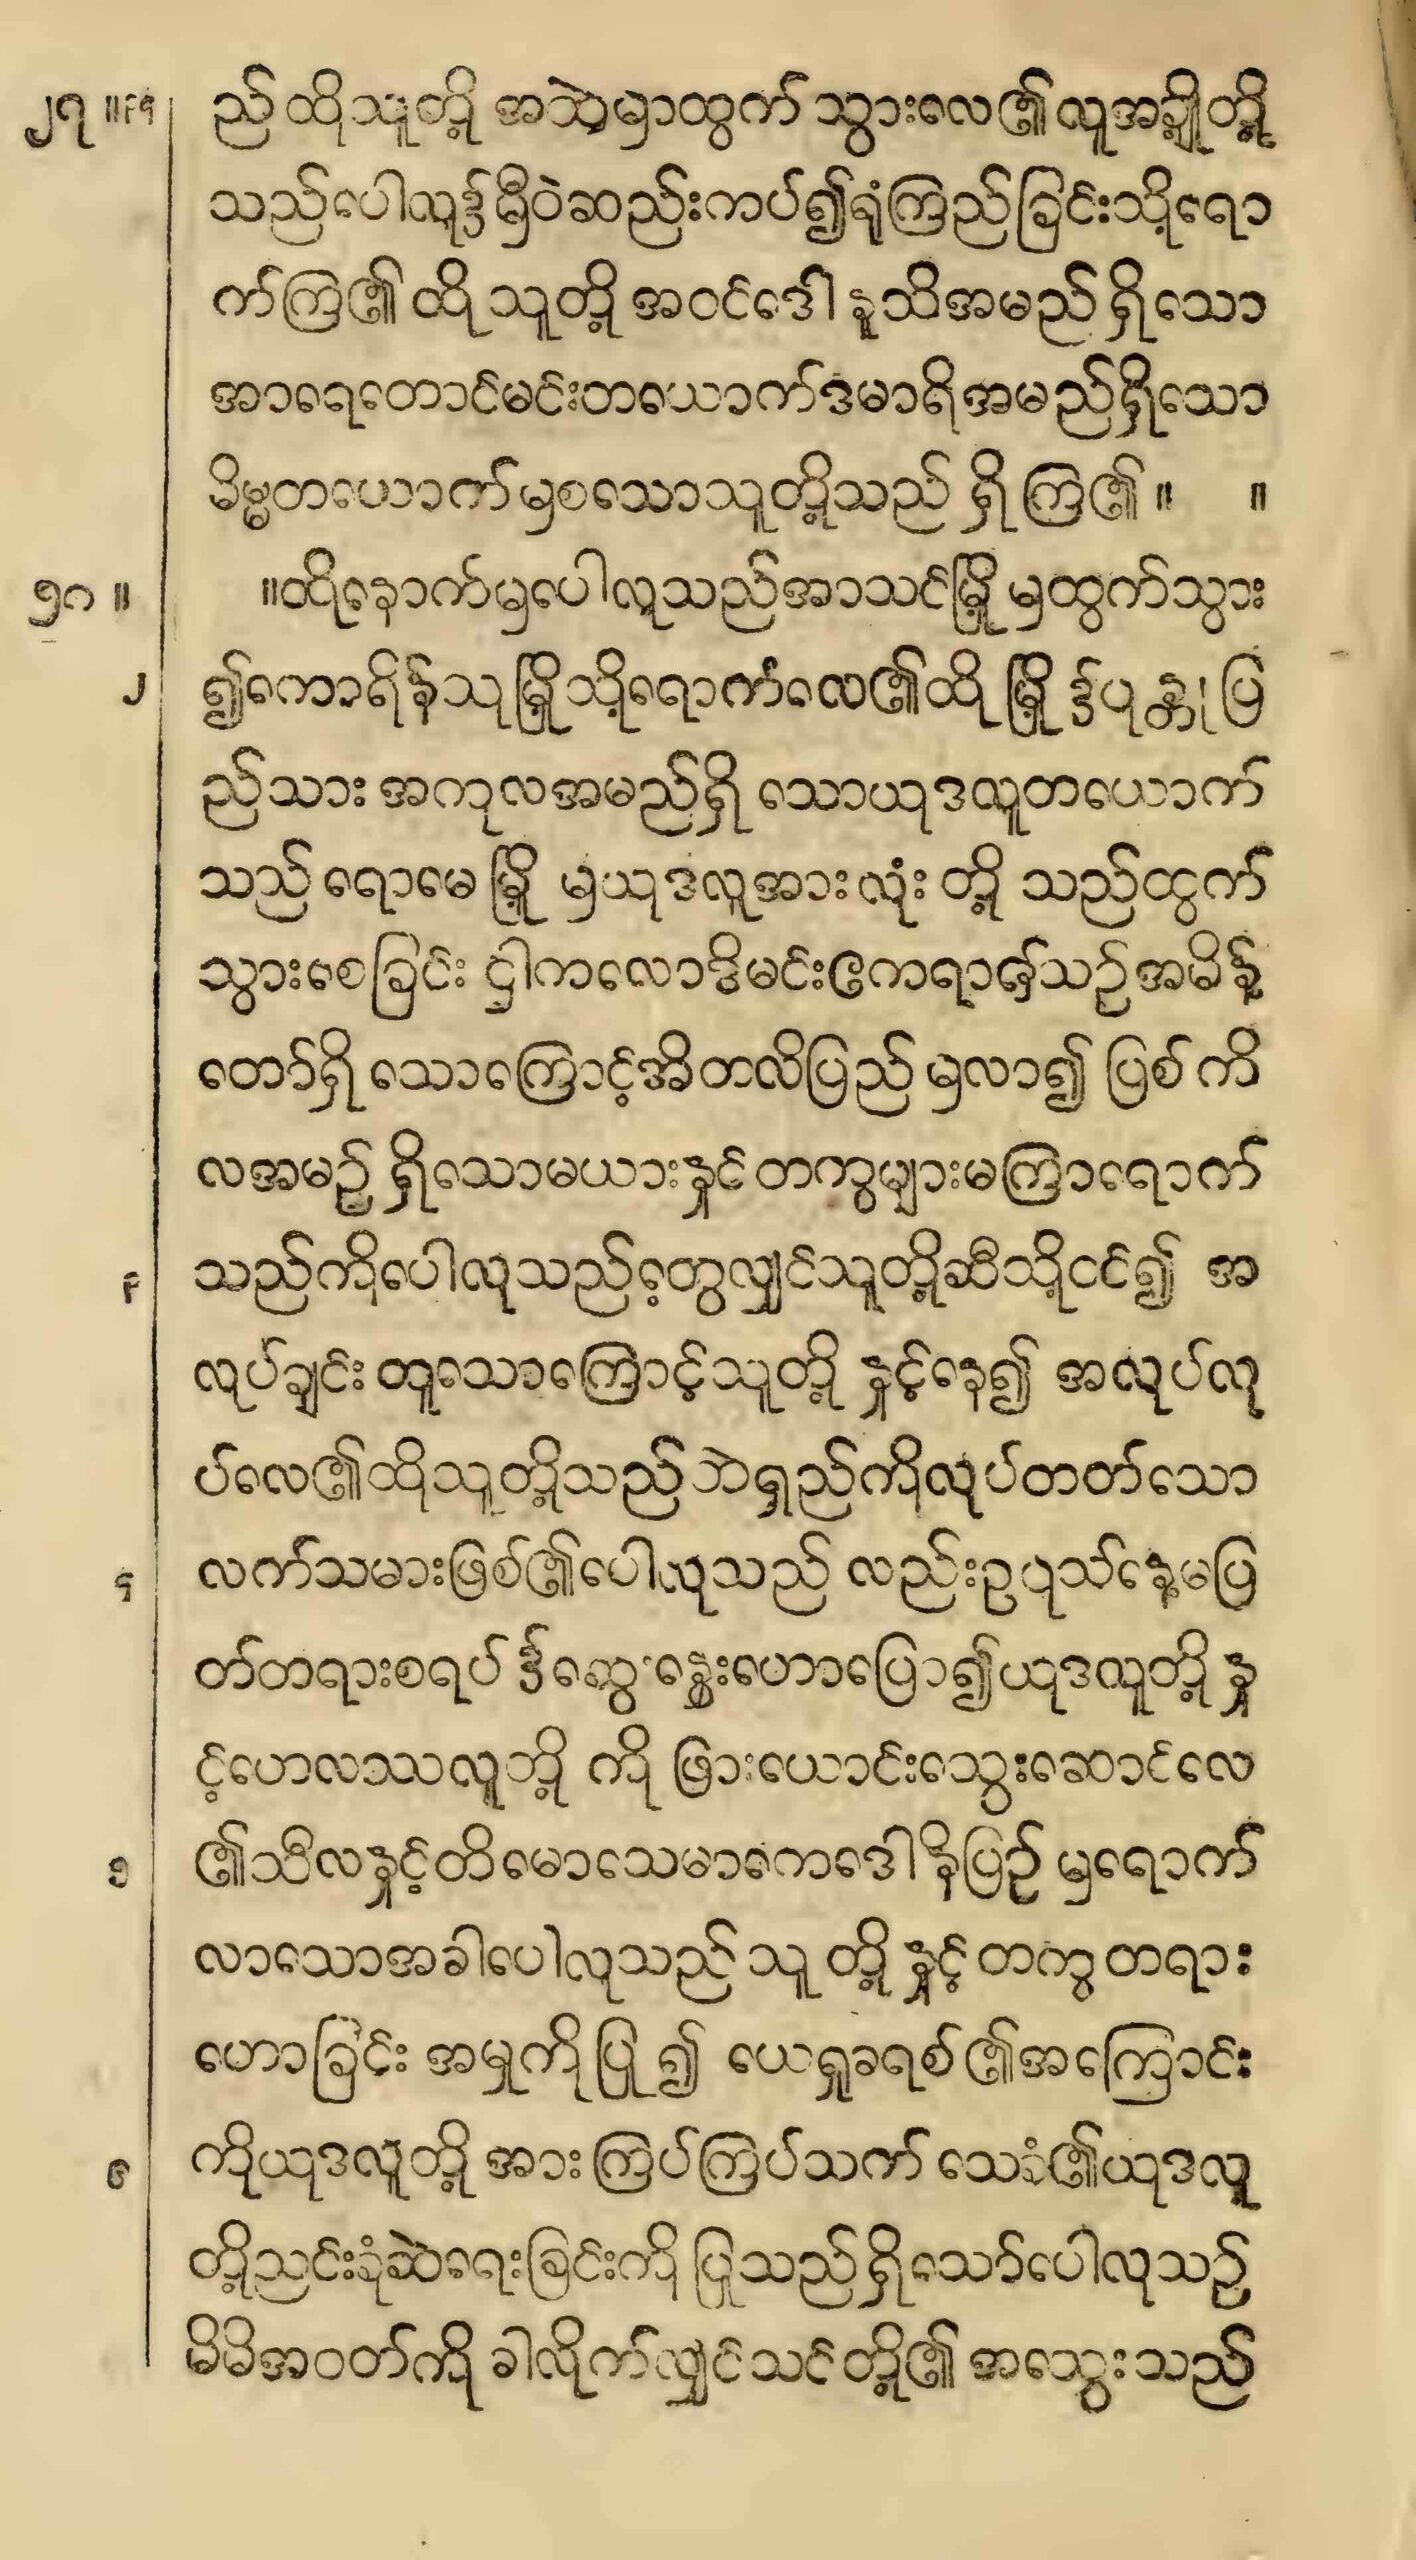 ၂၇ ။၎၄ ည် ထိုသူတို့ အဘဲမှာထွက် သွားလေ၏လူအချို့တို့
သည်ပေါလု၌မှီဝဲဆည်းကပ်၍ရုံကြည်ခြင်းသို့ရော
က်ကြ၏ ထိုသူတို့ အဝင်ဒေါနုသိအမည်ရှိသော
အာရေတောင်မင်းတယောက်ဒမာရိအမည်ရှိသော
မိမ္မတယောက်မှစသောသူတို့သည် ရှိကြ၏ ။ ။
။ထိုနောက်မှပေါလုသည်အာသင်မြို့မှထွက်သွား
၂ ၍ကောရိန်သုမြို့သို့ရောက်လေ၏ထိုမြို့၌ပုန္တုပြ
ည်သား အကုလအမည်ရှိ သောယုဒလူတယောက်
သည် ရောမေမြို့ မှယုဒလူအားလုံး တို့ သည်ထွက်
သွားစေခြင်း ဌါကလောဒိမင်းဧကရာဇ်သဉ်အမိန့်
တော်ရှိ သောကြောင့်အိတလိပြည်မှလာ၍ ပြစ်ကိ
လအမဉ်ရှိသောမယားနှင်တကွများမကြာရောက်
၃ သည်ကိုပေါလုသည်ငှေ့တွလျှင်သူတို့ဆီသို့ငင်၍ အ
လုပ်ချင်းတူသောကြောင့်သူတို့ နှင့်နေ၍ အလုပ်လု
ပ်လေ၏ထိုသူတို့သည်ဘဲရှည်ကိုလုပ်တတ်သော
၄ လက်သမားဖြစ်၏ပေါလုသည် လည်းဥပုသ်နေ့မပြ
တ်တရားစရပ်၌ဆွေးနွေးဟောပြော၍ယုဒလူတို့ နှ
င့်ဟေလသလူတို့ ကို ဖြားယောင်းသွေးဆောင်လေ
၅ ၏သီလနှင့်တိမောသေမာကေဒေါနိပြဉ် မှရောက်
လာသောအခါပေါလုသည် သူတို့ နှင့် တကွ တရား
ဟောခြင်း အမှုကိုပြု၍ ယေရှုခရစ်၏အကြောင်း
၆ ကိုယုဒလူတို့ အား ကြပ်ကြပ်သက် သေခံ၏ယုဒလူ
တို့ညင်းခုံဆဲရေးခြင်းကို ပြုသည်ရှိသော်ပေါလုသဉ်
မိမိအဝတ်ကို ခါလိုက်လျှင်သင်တို့၏ အသွေးသည်